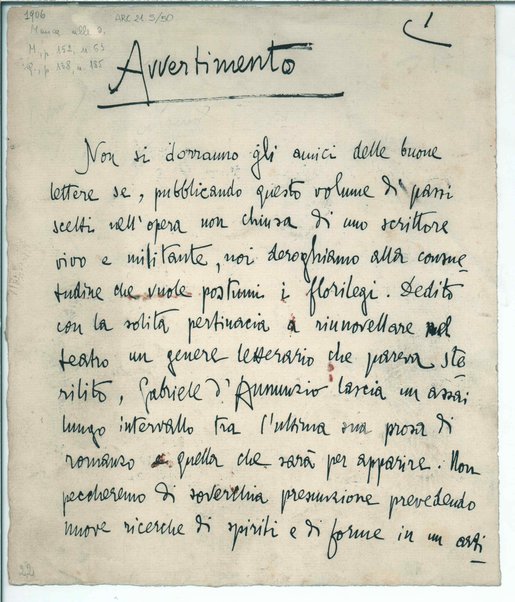 1906
ARC 21.5/50
1
M, p 152, n 53
p 188, n. 185
Avvertimento
Non si dorranno gli amici delle buone
lettere se, pubblicando questo volume di passi
scelti nell'opera non chiusa di uno scrittore
vivo e militante, noi deroghiamo alla consue-
tudine che vuole postumi i florilegi. Dedito
con la solita pertinacia a rinnovellare nel
teatro un genere letterario che pareva ste-
rilito, Gabriele d'Annunzio lascia un assai
lungo intervallo tra l'ultima sua prosa di
romanzo e quella che sarà per apparire. Non
peccheremo di soverchia presunzione prevedendo
nuove ricerche di spiriti e di forme in un arti-
22